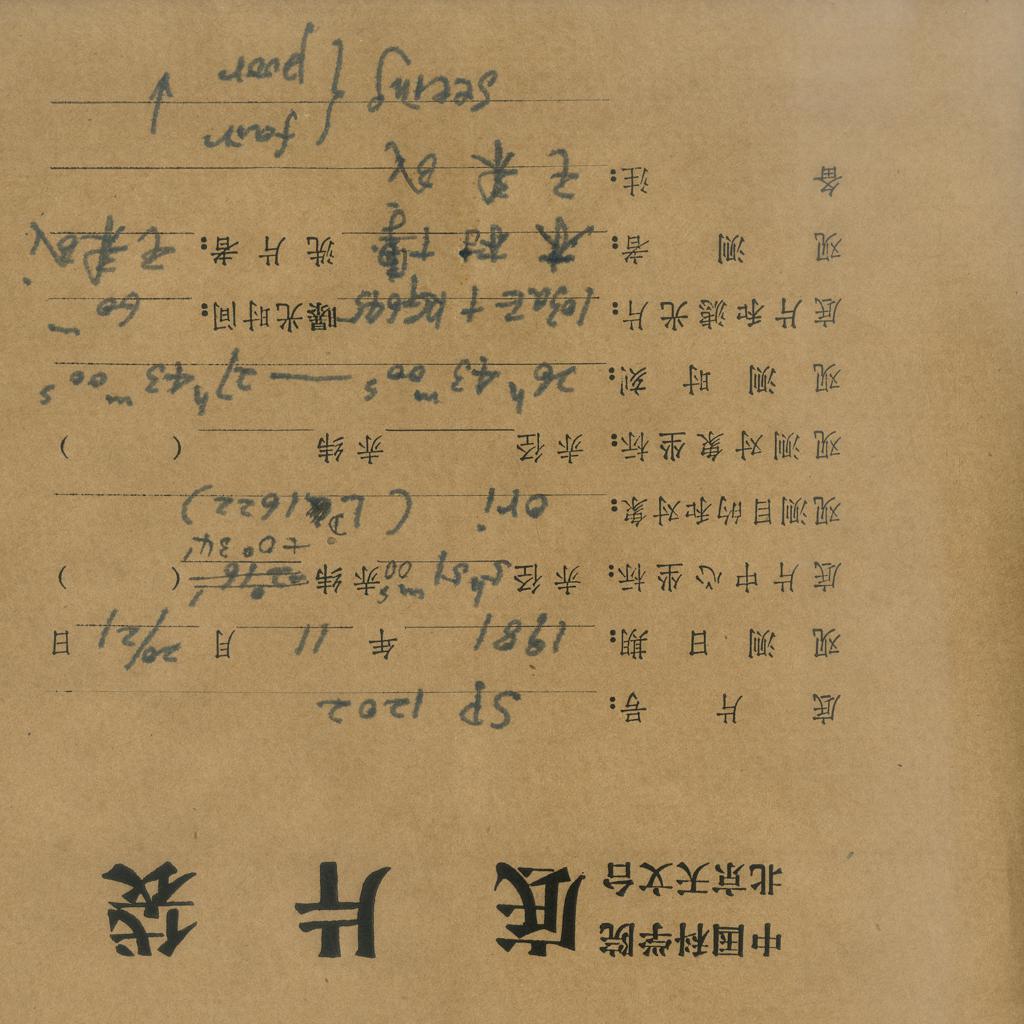 中国科学院
北京天文台
底片袋
底片号: SP 1202
观测日期: 1981 年 11 月 20/21 日
底片中心坐标: 赤径 5h51m00s 赤纬 +0°34′ ( )
观测目的和对象: ori (LD1622)
观测对象坐标: 赤径 赤纬 ( )
观测时刻: 26h43m00s — 27h43m00s
底片和滤光片: 103aE + RG645 曝光时间: 60m
观测者: 木村 洗片者:
备注:
seeing { fair
poor ↓